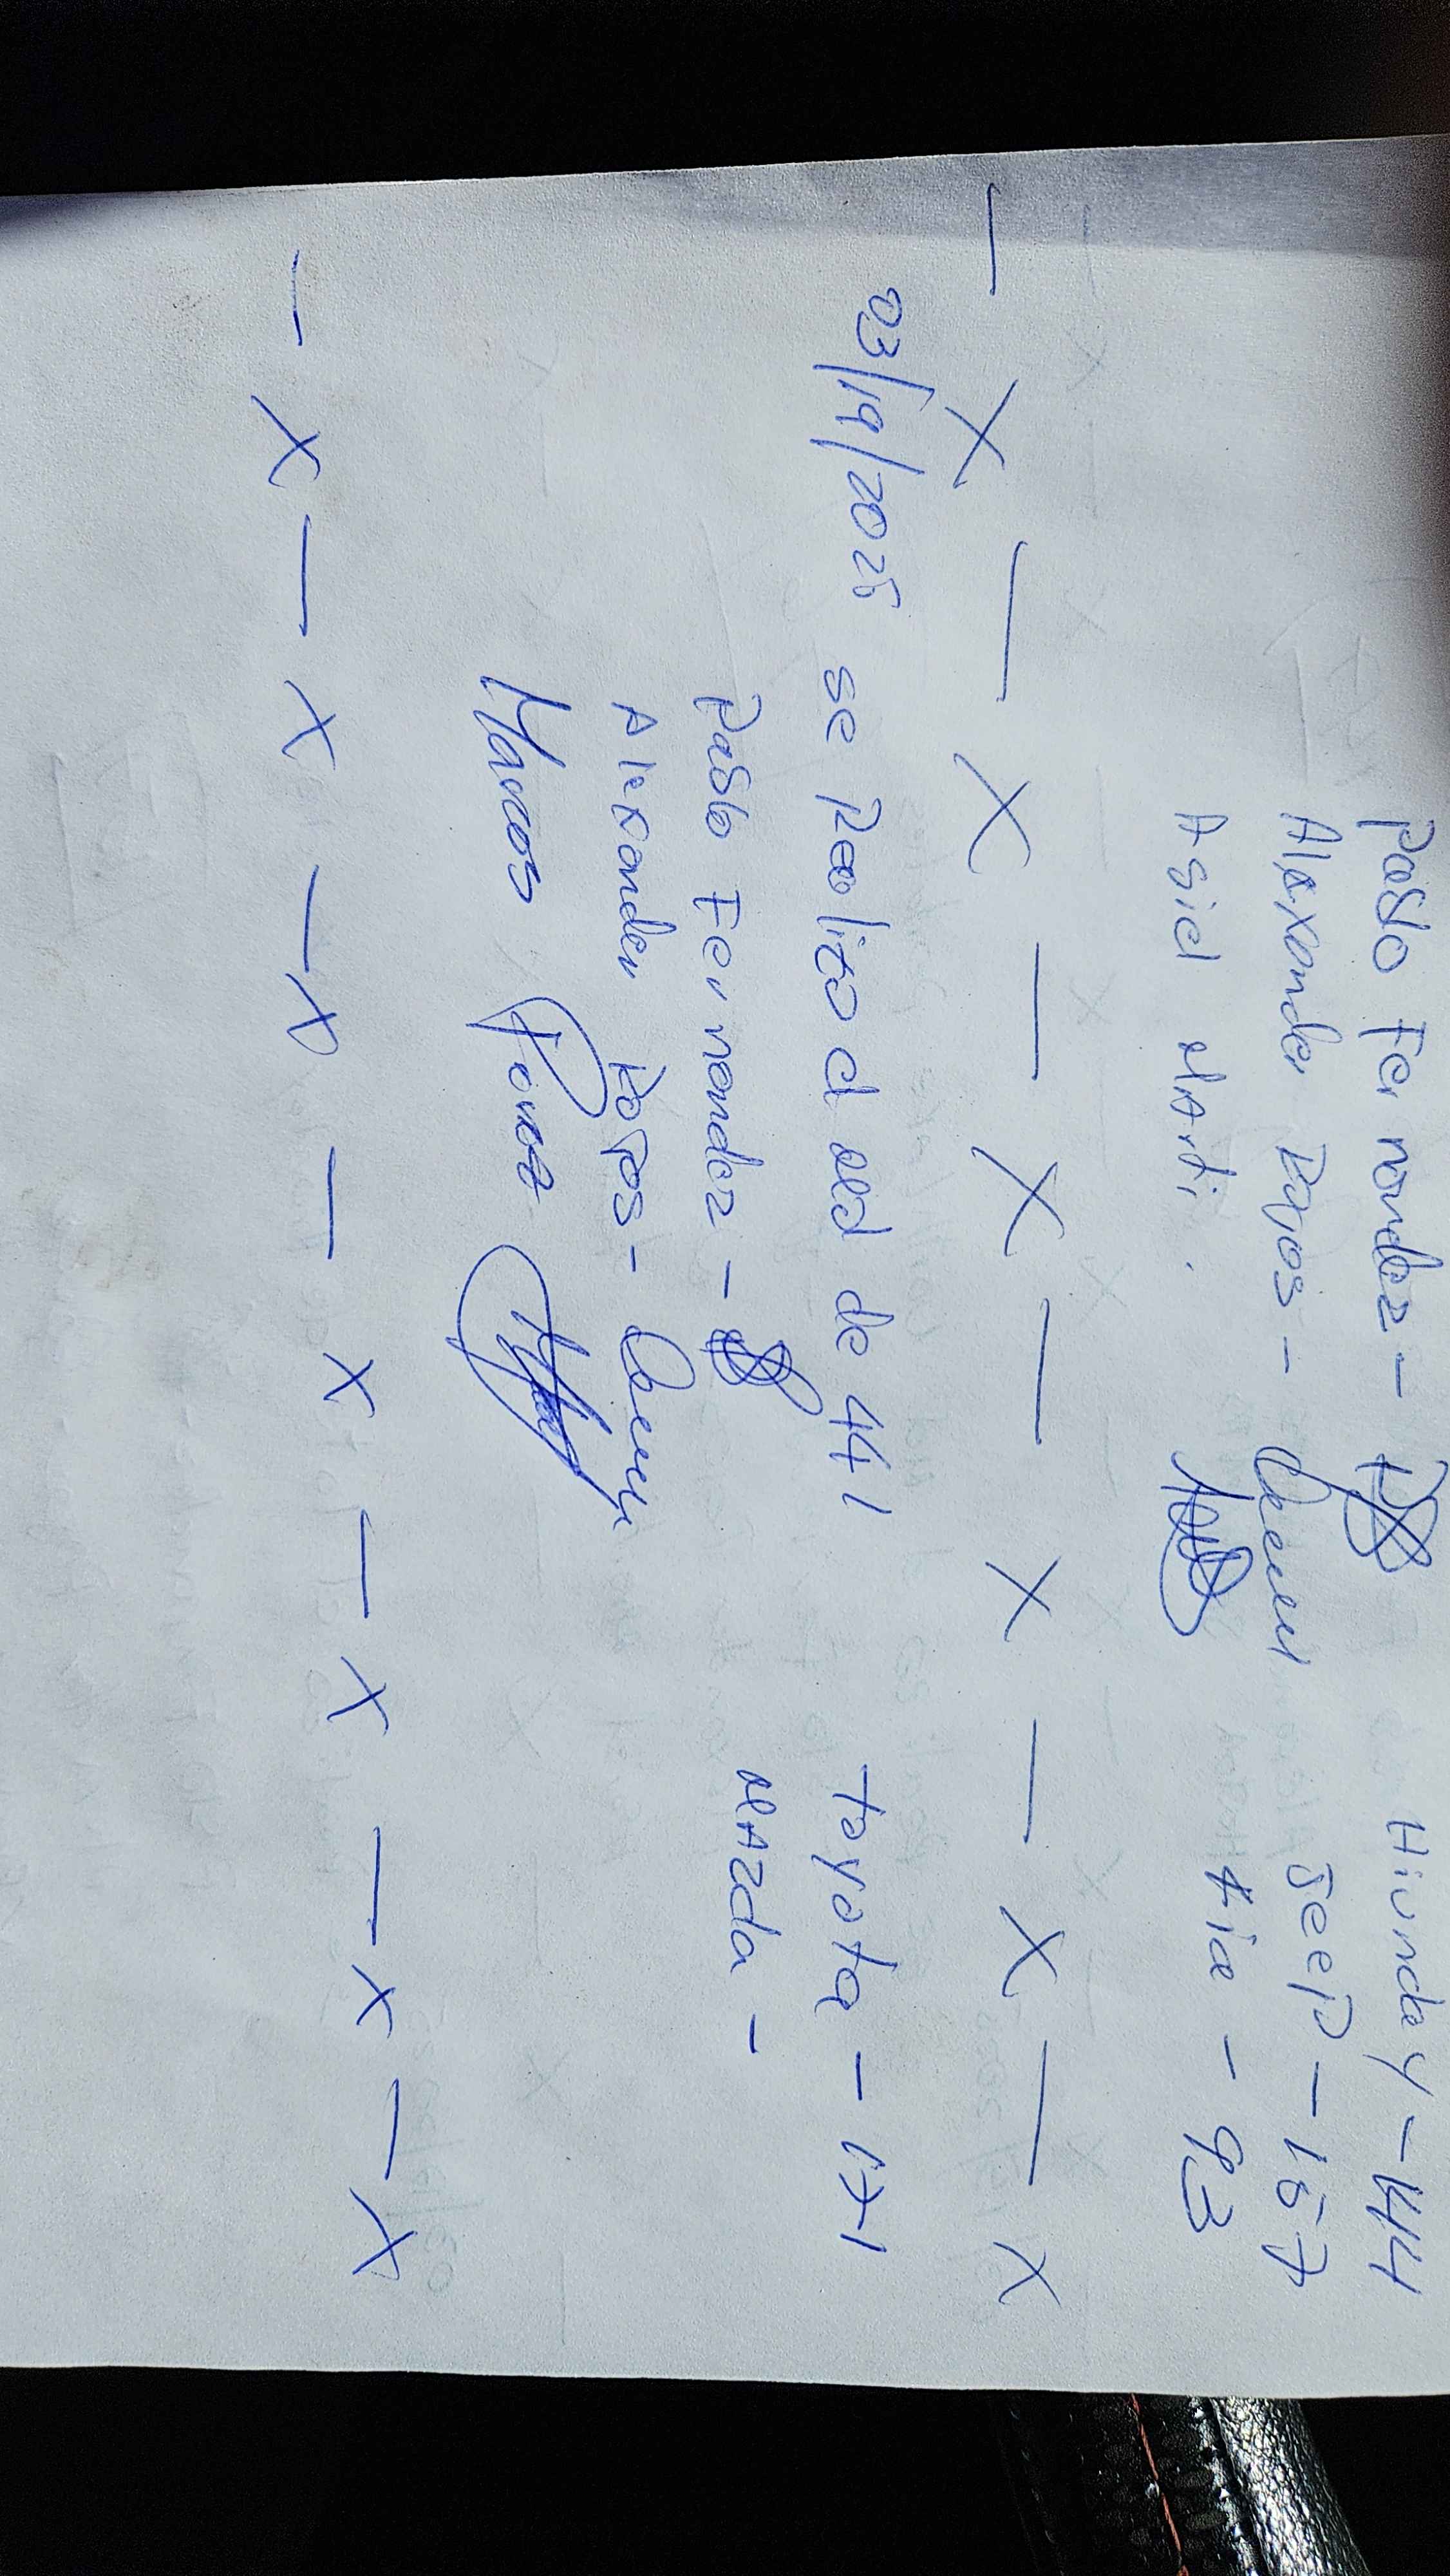 Pablo Fernandez - Hiunday - 144
Alexander Popos - Jeep - 157
Asiel Marti. Kia - 93
- X - X - X - X - X - X
03/19/2025 se Realizo d MD de 441
toyota - 171
Pablo Fernandez - Mazda -
Alexander Popos -
Marcos Perez
- X - X - X - X - X - X - X